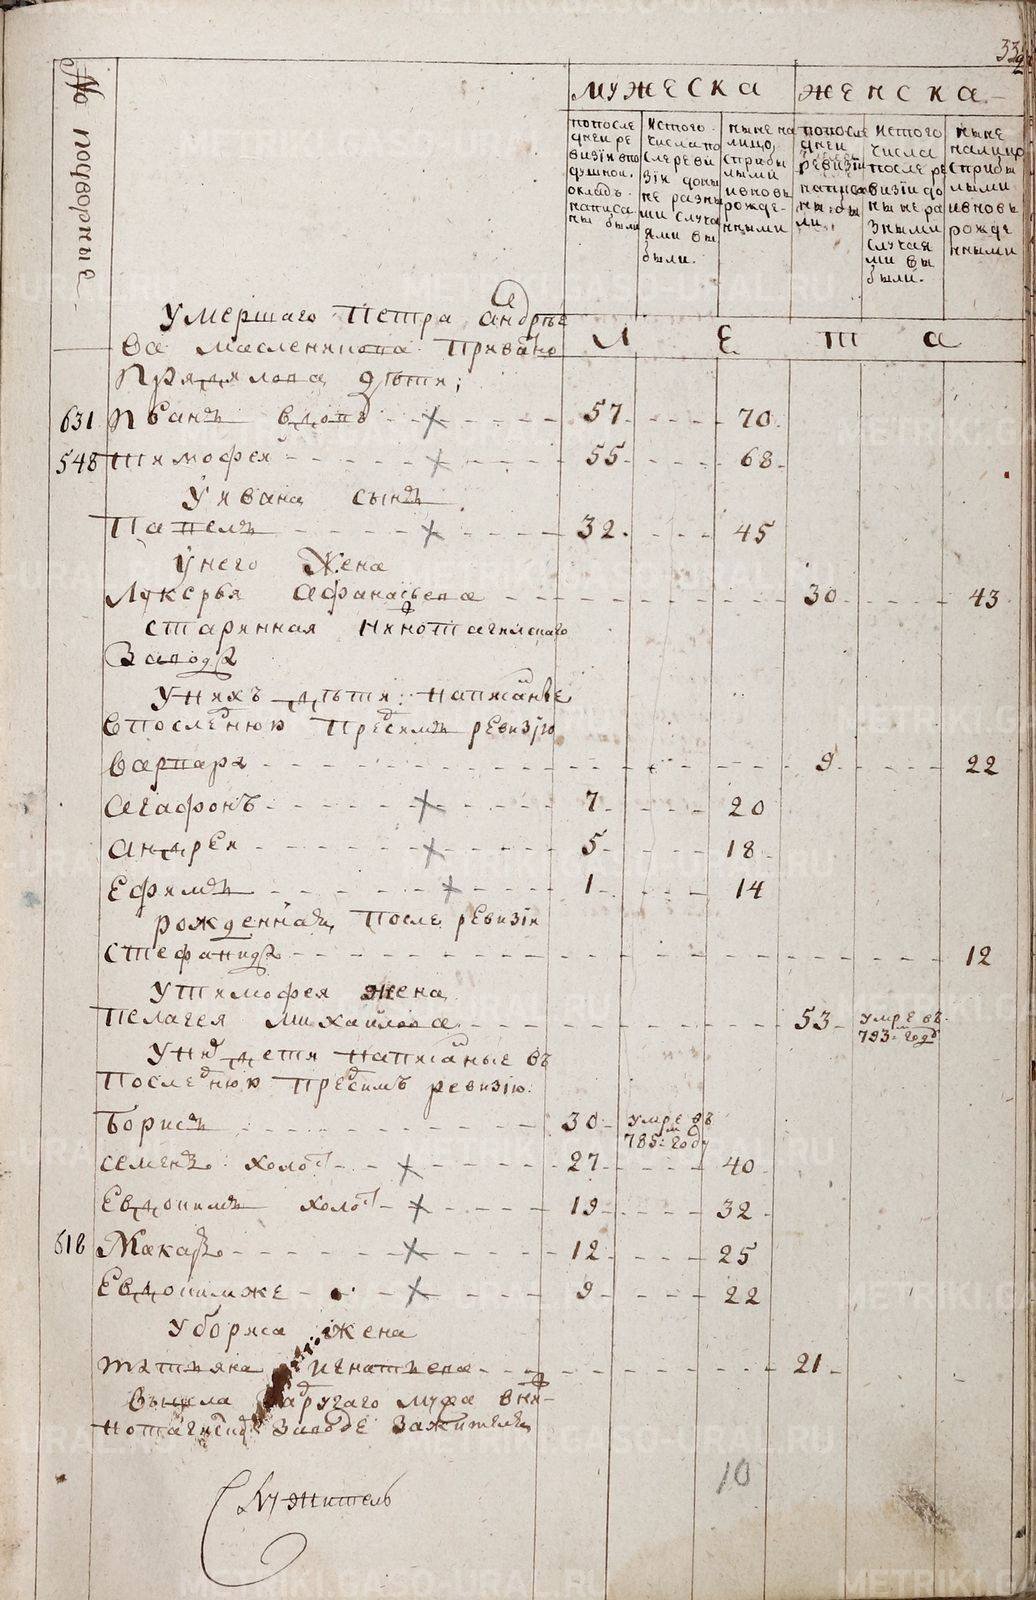 332
№ подворные
мужеска
женска
попоследней ревизiи вподушной окладъ написаны были
Истого числа последней ревизiи доныне разными случаями выбыли.
ныне налицо сприбылыми ивновь рожденными
попоследней ревизiи написаны были
Истого числа после ревизiи доныне разными случаями выбыли.
ныне налицо сприбылыми ивновь рожденными
умершаго петра андрѣе
ва масленикова
л е т а
дѣти;
631 Иванъ вдовъ 57 70
548 тимофей 55 68
У ивана сынъ
Павелъ 32 45
Унего Жена
Лукерья афанасьева 30 43
старинная
Завода
Унихъ дѣти: написанные
впоследнюю предсимъ ревизiю
варвара 9 22
агафонъ 7 20
андрей 5 18
Ефимъ 1 14
рожденная после ревизiи
стефанида 12
У тимофея жена
пелагея михайлова 53 умре въ
793м годе
Унихъ дети написанные въ
последнюю предсимъ ревизiю.
Борисъ 30 умре въ
785м году
семенъ холостъ 27 40
Евдокимъ холостъ 19 32
618 Макаръ 12 25
Евдокимже 9 22
У бориса жена
татьяна игнатьева 21
вышла задругаго мужа вни-
нотагилскомъ заводе зажителя
10
Служитель